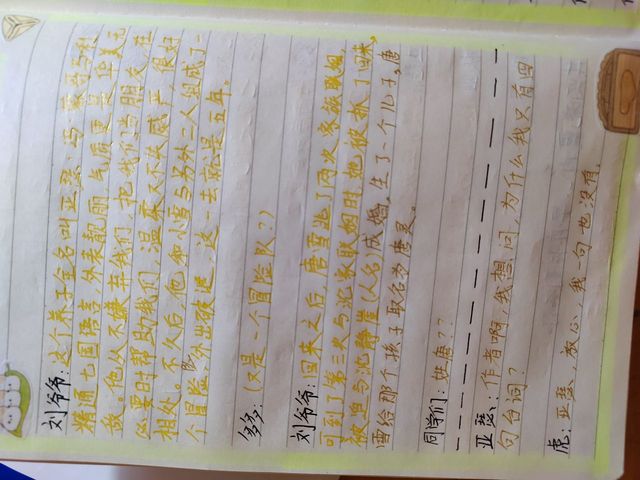 刘爷爷：这个养子全名叫亚瑟·马
精通七国语言，外表靓丽，气质更是
他从不嫌弃我们，把我们当朋友，在
必要时帮助我们，温柔又不失威严，很好
相处。不久后，他和小雪与另外二人组成了一
个冒险队外出旅途，这一去就是五年。
多多：（又是一个冒险队？？）
刘爷爷：回来之后，唐雪逃了两次家族联姻，
可到了第三次与池家联姻时，她被抓了回来，
被迫与池静崖（人名）成婚，生了一个儿子，唐
雪给那个孩子取名为唐灵。
同学们：姓唐？？
亚瑟：作者啊，我想问，为什么我只有四
句台词？
虎：亚瑟，放心，我一句也没有。